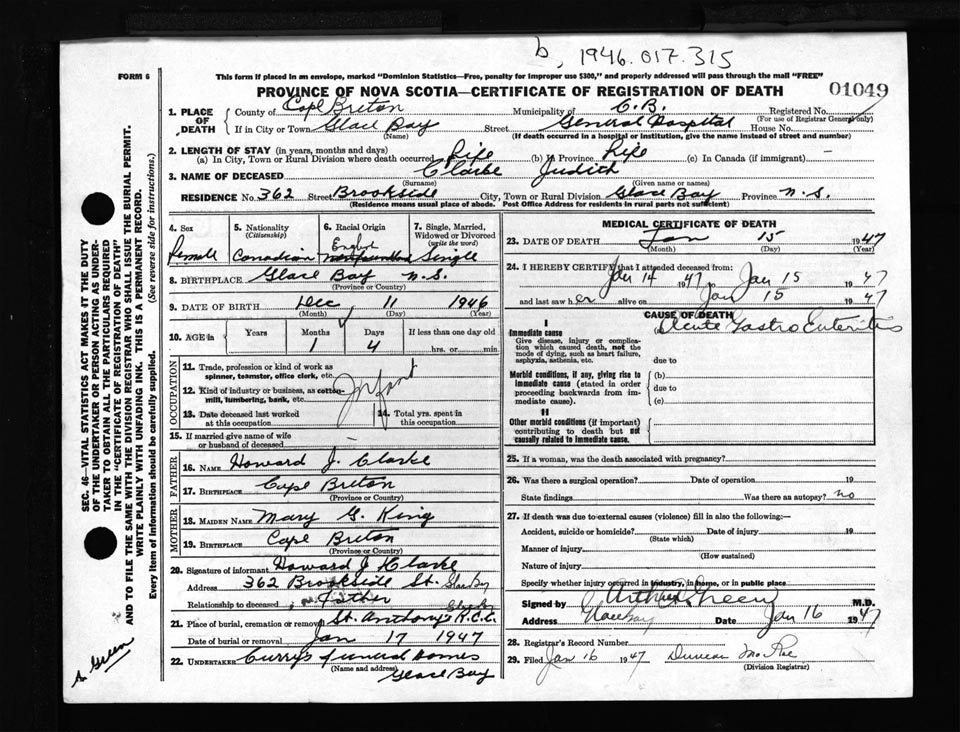 b, 1946.017.315
FORM 6
This form if placed in an envelope, marked "Dominion Statistics—Free, penalty for improper use $300," and properly addressed will pass through the mail "FREE"
PROVINCE OF NOVA SCOTIA—CERTIFICATE OF REGISTRATION OF DEATH
01049
1. PLACE OF DEATH
County of Cape Breton Municipality of C.B. Registered No.
(For use of Registrar General only)
If in City or Town Glace Bay Street General Hospital House No.
(Name) (If death occurred in a hospital or institution, give the name instead of street and number)
2. LENGTH OF STAY (in years, months and days)
(a) In City, Town or Rural Division where death occurred Life (b) In Province Life (c) In Canada (if immigrant) —
3. NAME OF DECEASED Clarke Judith
(Surname) (Given name or names)
RESIDENCE No. 362 Street Brookside City, Town or Rural Division Glace Bay Province N.S.
(Residence means usual place of abode. Post Office Address for residents in rural parts not sufficient)
4. Sex
Female
5. Nationality
(Citizenship)
Canadian
6. Racial Origin
English
7. Single, Married, Widowed or Divorced
(write the word)
Single
8. BIRTHPLACE Glace Bay N.S.
(Province or Country)
9. DATE OF BIRTH Dec 11 1946
(Month) (Day) (Year)
10. AGE in
Years Months Days If less than one day old
1 4 hrs. or min.
OCCUPATION
11. Trade, profession or kind of work as spinner, teamster, office clerk, etc.
12. Kind of industry or business, as cotton-mill, lumbering, bank, etc.
Infant
13. Date deceased last worked at this occupation
14. Total yrs. spent in this occupation
15. If married give name of wife or husband of deceased —
FATHER
16. NAME Howard J. Clarke
17. BIRTHPLACE Cape Breton
(Province or Country)
MOTHER
18. MAIDEN NAME Mary G. King
19. BIRTHPLACE Cape Breton
(Province or Country)
20. Signature of informant Howard J Clarke
Address 362 Brookside St. Glace Bay
Relationship to deceased Father
21. Place of burial, cremation or removal St. Anthony's R.C.C. Glace Bay
Date of burial or removal Jan 17 1947
22. UNDERTAKER Curry's Funeral Homes
(Name and address)
Glace Bay
MEDICAL CERTIFICATE OF DEATH
23. DATE OF DEATH Jan 15 1947
(Month) (Day) (Year)
24. I HEREBY CERTIFY that I attended deceased from:
Jan 14 1947 to Jan 15 1947
and last saw her alive on Jan 15 1947
CAUSE OF DEATH
I
Immediate cause
(a) Acute Gastro Enteritis
Give disease, injury or complication which caused death, not the mode of dying, such as heart failure, asphyxia, asthenia, etc.
due to
Morbid conditions, if any, giving rise to immediate cause (stated in order proceeding backwards from immediate cause).
(b)
due to
(c)
II
Other morbid conditions (if important) contributing to death but not causally related to immediate cause.
25. If a woman, was the death associated with pregnancy?
26. Was there a surgical operation? Date of operation 19
State findings Was there an autopsy? no
27. If death was due to external causes (violence) fill in also the following:—
Accident, suicide or homicide? Date of injury 19
(State which)
Manner of injury
(How sustained)
Nature of injury
Specify whether injury occurred in industry, in home, or in public place
Signed by Arthur Green M.D.
Address Glace Bay Date Jan 16 1947
28. Registrar's Record Number
29. Filed Jan 16 1947 Duncan McRae
(Division Registrar)
SEC. 46—VITAL STATISTICS ACT MAKES AT THE DUTY OF THE UNDERTAKER OR PERSON ACTING AS UNDERTAKER TO OBTAIN ALL THE PARTICULARS REQUIRED IN THE "CERTIFICATE OF REGISTRATION OF DEATH" AND TO FILE THE SAME WITH THE DIVISION REGISTRAR WHO SHALL ISSUE THE BURIAL PERMIT.
WRITE PLAINLY WITH UNFADING INK. THIS IS A PERMANENT RECORD.
Every item of information should be carefully supplied. (See reverse side for instructions.)
A Green